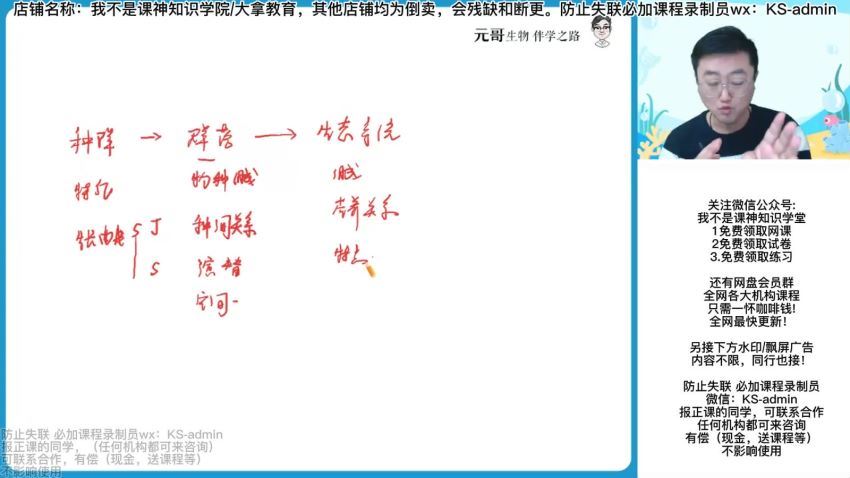 店铺名称：我不是课神知识学院/大拿教育，其他店铺均为倒卖，会残缺和断更。防止失联必加课程录制员wx：KS-admin
元哥生物 伴学之路
种群 → 群落 → 生态系统
特征 物种组成 组成
J 种间关系 营养关系
S 演替 特点
空间
关注微信公众号:
我不是课神知识学堂
1免费领取网课
2免费领取试卷
3.免费领取练习
还有网盘会员群
全网各大机构课程
只需一怀咖啡钱!
全网最快更新!
另接下方水印/飘屏广告
内容不限，同行也接!
防止失联 必加课程录制员
微信：KS-admin
报正课的同学，可联系合作
任何机构都可来咨询
有偿（现金，送课程等）
不影响使用
防止失联 必加课程录制员wx：KS-admin
报正课的同学，（任何机构都可来咨询）
可联系合作，有偿（现金，送课程等）
不影响使用